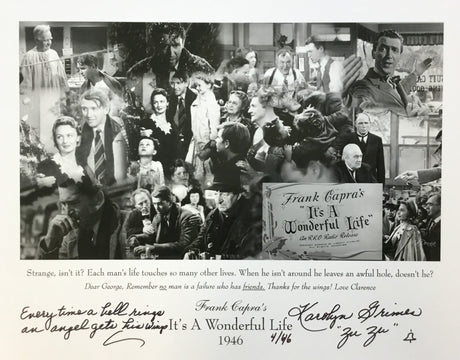 Frank Capra's
"It's A
Wonderful Life"
An RKO Radio Release
Strange, isn't it? Each man's life touches so many other lives. When he isn't around he leaves an awful hole, doesn't he?
Dear George, Remember no man is a failure who has friends. Thanks for the wings! Love Clarence
Every time a bell rings
an angel gets his wings
Frank Capra's
It's A Wonderful Life
1946
4/46
Karolyn Grimes
"Zu Zu"